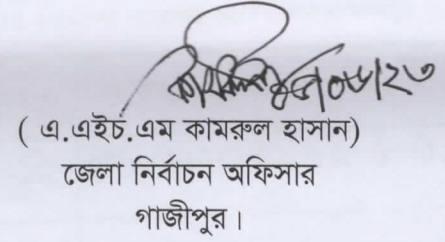 ( এ.এইচ.এম কামরুল হাসান)
জেলা নির্বাচন অফিসার
গাজীপুর।